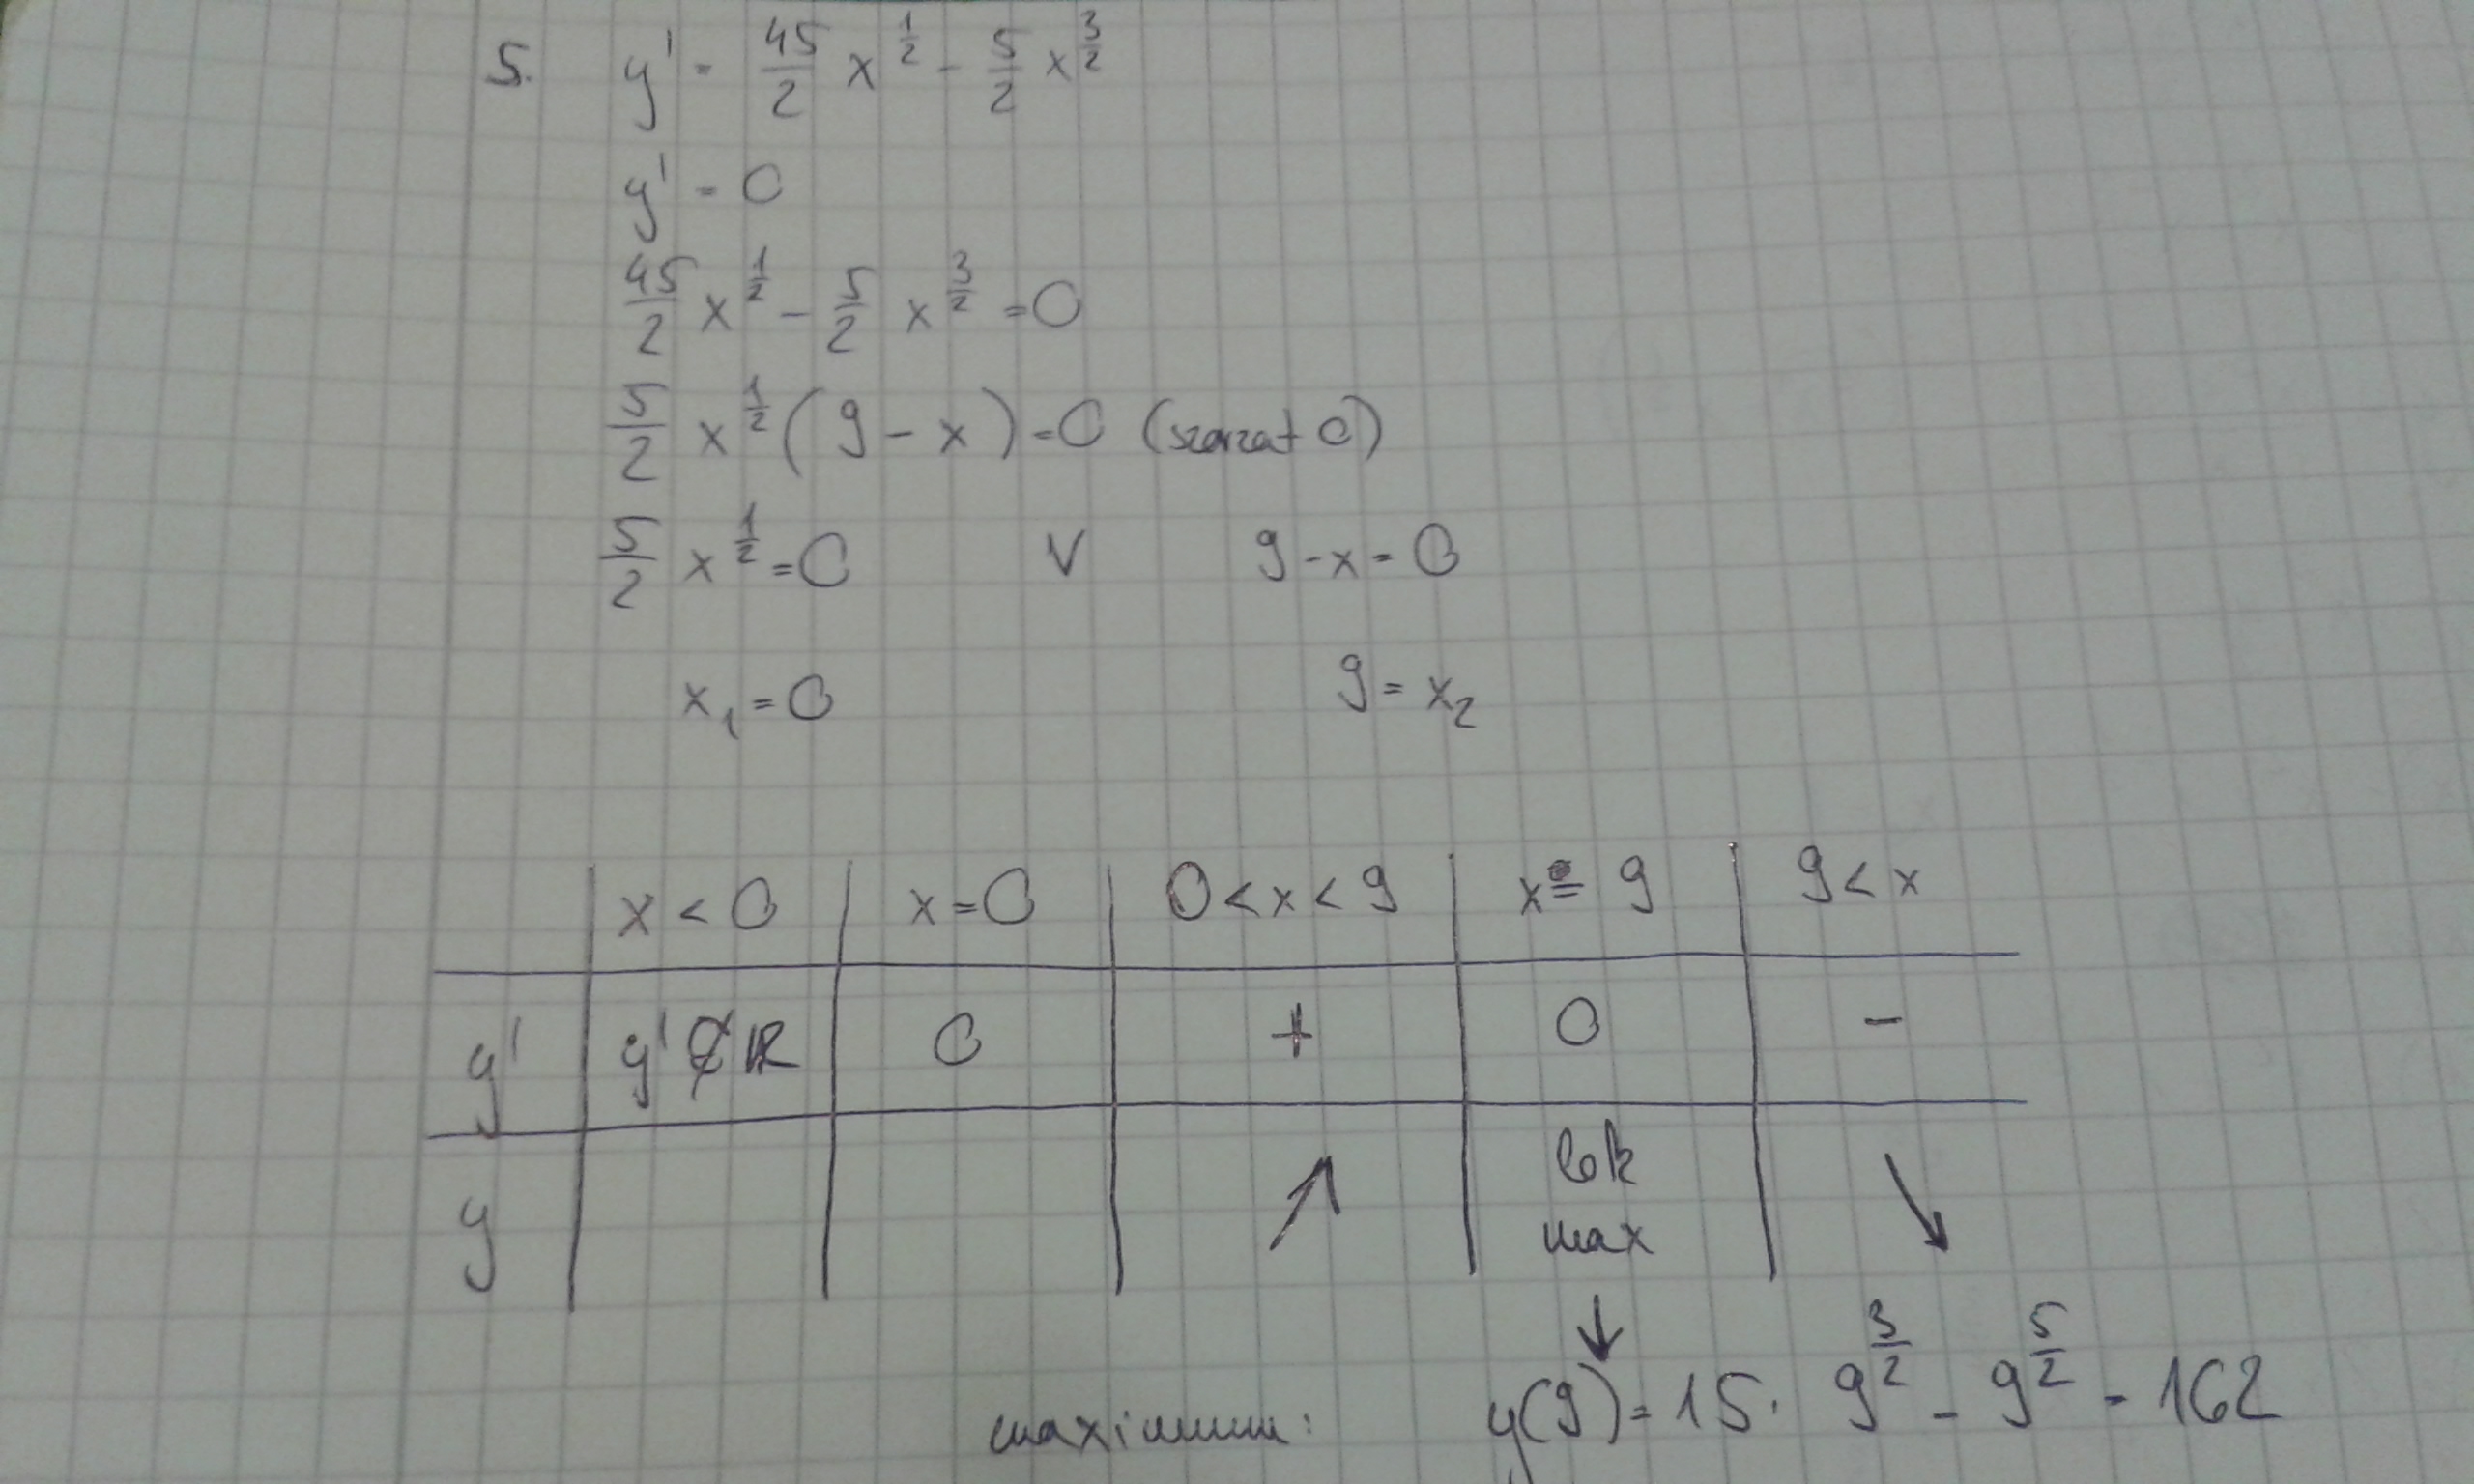 5. y' = 45/2 x^(1/2) - 5/2 x^(3/2)
y' = 0
45/2 x^(1/2) - 5/2 x^(3/2) = 0
5/2 x^(1/2) (9 - x) = 0 (szorzat 0)
5/2 x^(1/2) = 0 ∨ 9 - x = 0
x₁ = 0 9 = x₂
x < 0 | x = 0 | 0 < x < 9 | x = 9 | 9 < x
y' | y' ∉ ℝ | 0 | + | 0 | -
y | | | ↗ | lok max | ↘
↓
maximum: y(9) = 15 · 9^(3/2) - 9^(5/2) = 162